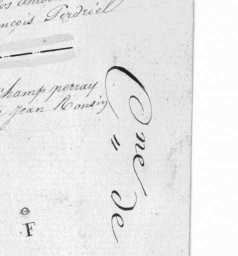 nçois Perdriel
champ perray
Jean Ronsin
Cne de
F